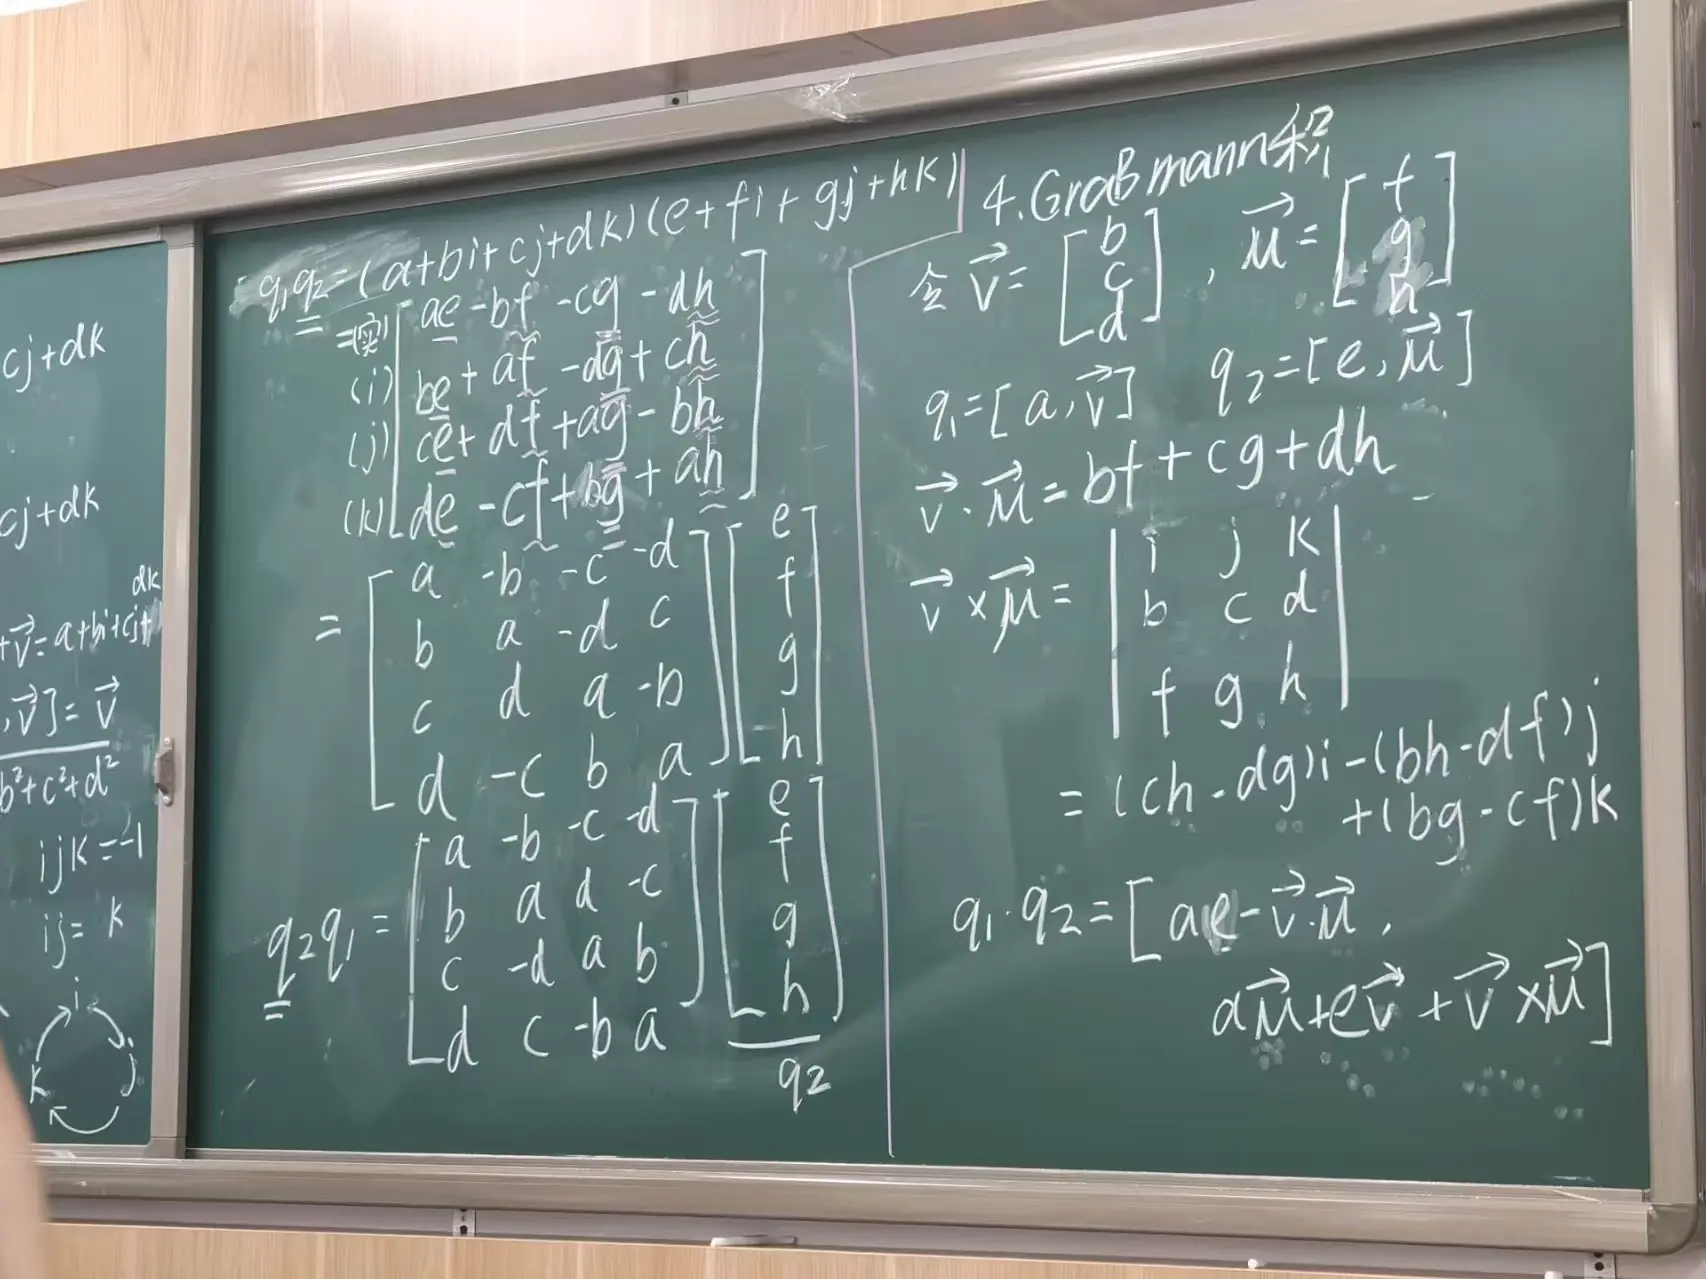 cj+dk
cj+dk
+v⃗=a+bi+cj+dk
,v⃗]=v⃗
b²+c²+d²
ijk=-1
ij=k
i
j
k
q₁q₂=(a+bi+cj+dk)(e+fi+gj+hk)
=(实)[ae-bf-cg-dh
(i) be+af-dg+ch
(j) ce+df+ag-bh
(k) de-cf+bg+ah]
=[a -b -c -d][e
b a -d c f
c d a -b g
d -c b a h]
q₂q₁=[a -b -c -d][e
b a d -c f
c -d a b g
d c -b a h]
q₂
4.Graßmann积
令 v⃗=[b c d], μ⃗=[f g h]
q₁=[a,v⃗] q₂=[e,μ⃗]
v⃗·μ⃗=bf+cg+dh
v⃗×μ⃗=|i j k
b c d
f g h|
=(ch-dg)i-(bh-df)j
+(bg-cf)k
q₁·q₂=[ae-v⃗·μ⃗,
aμ⃗+ev⃗+v⃗×μ⃗]